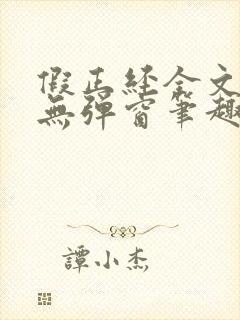 假正经全文
無彈窗筆趣
譚小杰